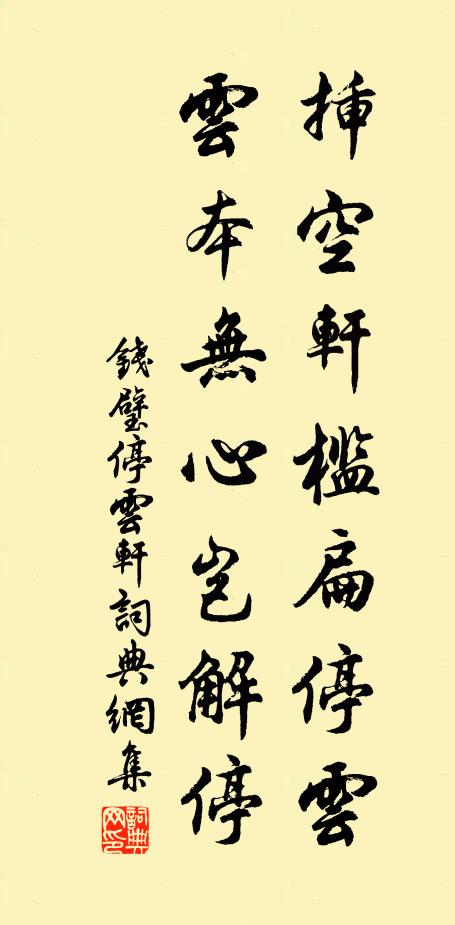 挿空軒檻扁停雲
雲本無心豈解停
錢璧停雲軒詞典網集
詞典網印